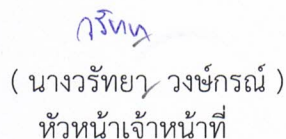 ( นางวรัทยา วงษ์กรณ์ )
หัวหน้าเจ้าหน้าที่